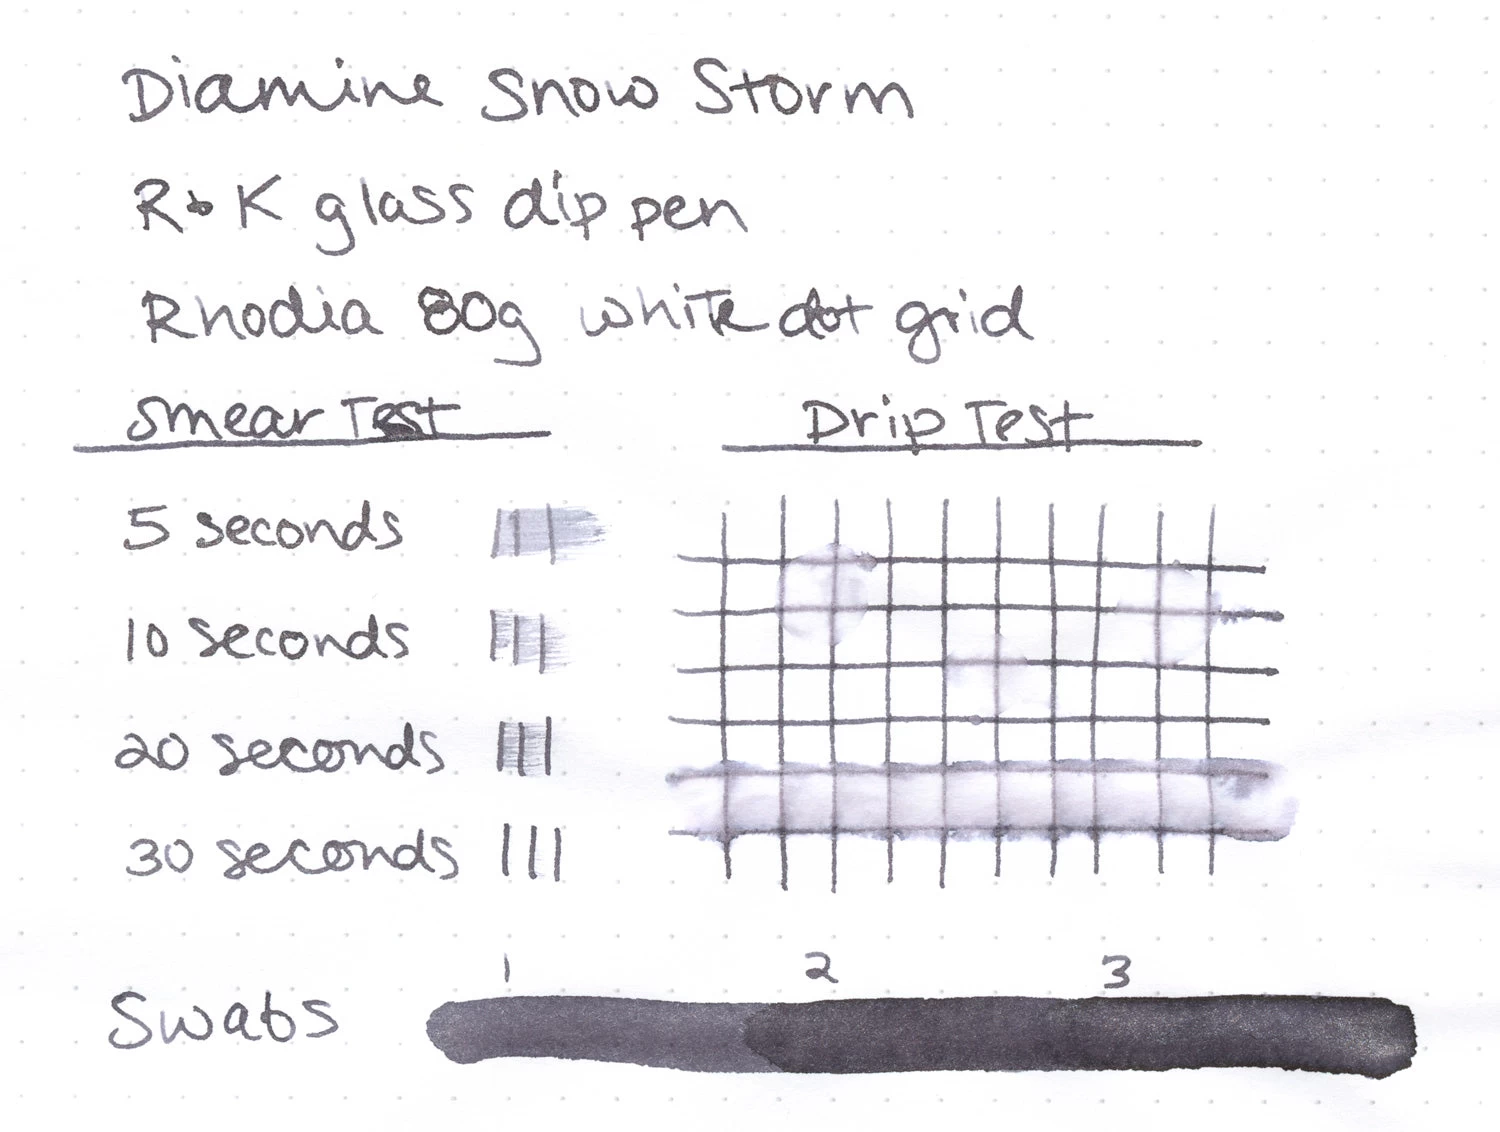 Diamine Snow Storm
R+K glass dip pen
Rhodia 80g white dot grid
Smear Test
Drip Test
5 seconds
10 seconds
20 seconds
30 seconds
1 2 3
Swabs